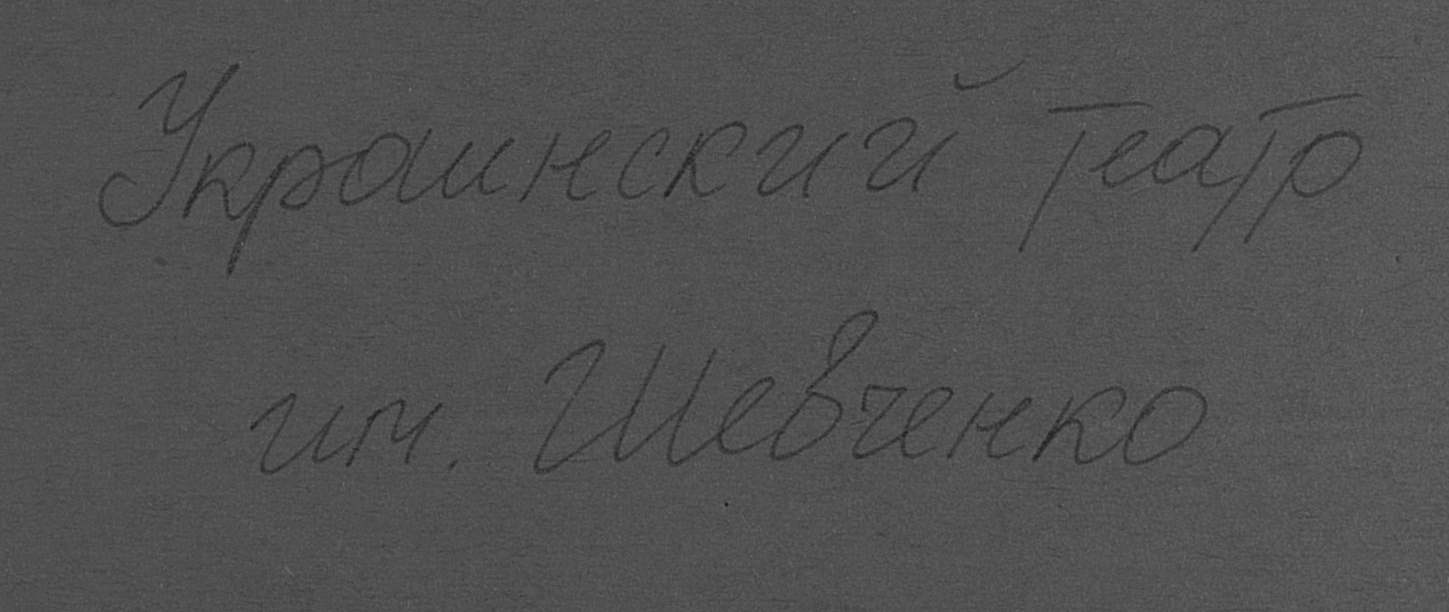 Украинский театр
им. Шевченко